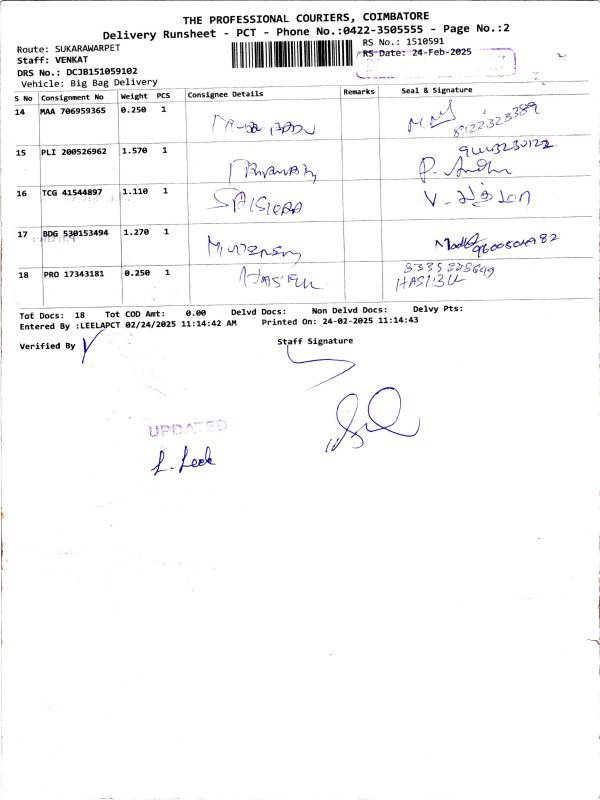 THE PROFESSIONAL COURIERS, COIMBATORE
Delivery Runsheet - PCT - Phone No.:0422-3505555 - Page No.:2
Route: SUKARAWARPET
RS No.: 1510591
Staff: VENKAT
RS Date: 24-Feb-2025
DRS No.: DCJB151059102
Vehicle: Big Bag Delivery
S No Consignment No Weight PCS Consignee Details Remarks Seal & Signature
14 MAA 706959365 0.250 1 8122323389
15 PLI 200526962 1.570 1
16 TCG 41544897 1.110 1
17 BDG 530153494 1.270 1 9600504982
18 PRO 17343181 0.250 1
HASIBU
Tot Docs: 18 Tot COD Amt: 0.00 Delvd Docs: Non Delvd Docs: Delvy Pts:
Entered By :LEELAPCT 02/24/2025 11:14:42 AM Printed On: 24-02-2025 11:14:43
Verified By
Staff Signature
UPDATED